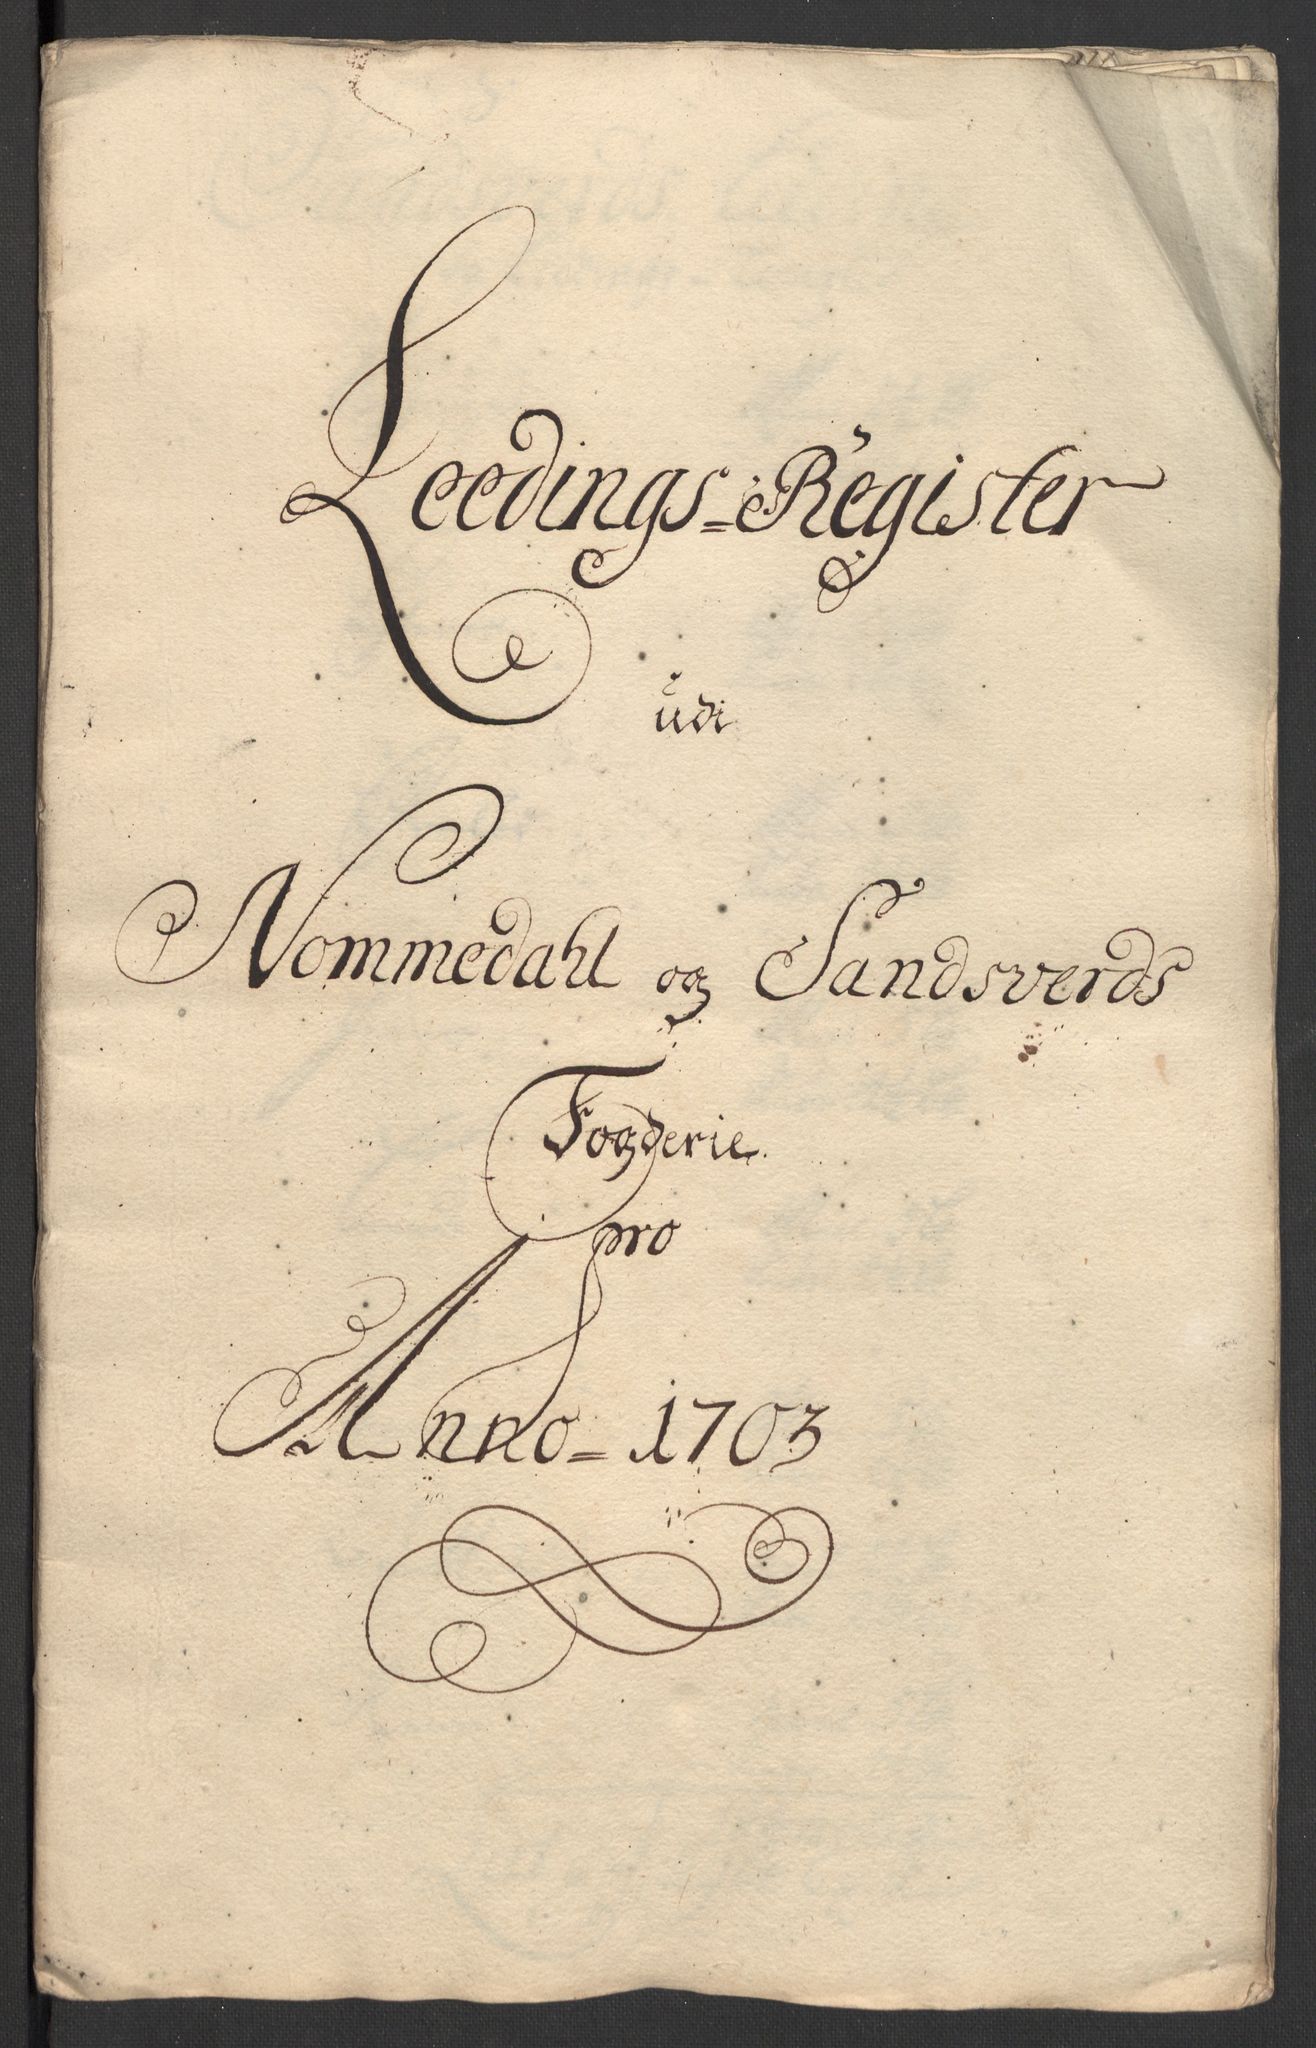 Leedings-Register
udi
Nommedahl og Sandsverds
Fogderie.
pro
Anno - 1703